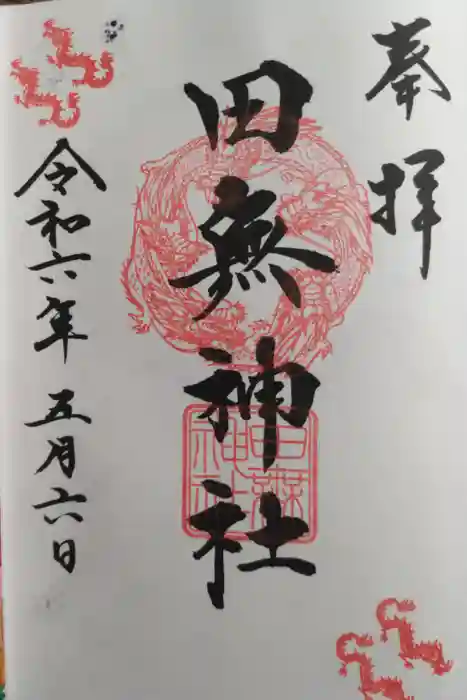 奉拝
田無神社
令和六年 五月六日
田無神社